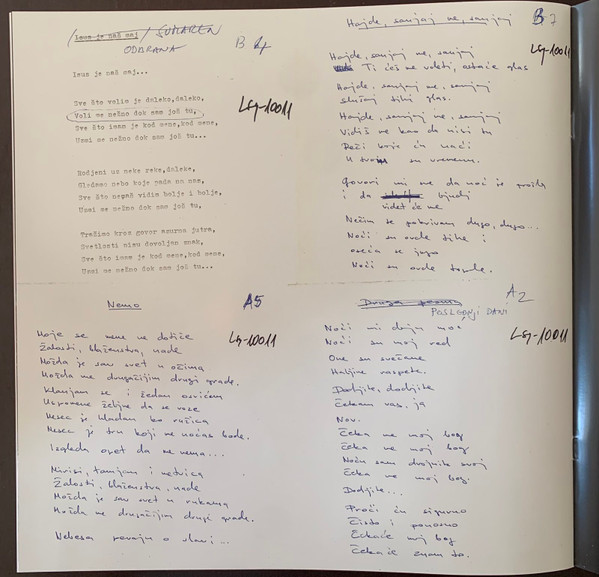 Isus je naš smj / ŠUMAREN
ODABRANA
B 4
Isus je naš smj...
LSY-10011
Sve što volim je daleko,daleko,
Voli me nežno dok sam još tu,
Sve što imam je kod mene,kod mene,
Uzmi me nežno dok sam još tu...
Rodjeni uz neke reke,daleke,
Gledamo nebo koje pada na nas,
Sve što nepaš vidim bolje i bolje,
Uzmi me nežno dok sam još tu,
Tražimo kroz govor sumorna jutra,
Svetlosti nisu dovoljan znak,
Sve što imam je kod mene,kod mene,
Uzmi me nežno dok sam još tu...
Hajde, sanjaj me, sanjaj
B
LSY-10011
Hajde, sanjaj me, sanjaj
Ti ćeš me voleti, ostaće glas
Hajde, sanjaj me, sanjaj
slušaj tihi glas.
Hajde, sanjaj me, sanjaj
Vidiš me kao da nisi tu
Reži koje ću naći
U tvom su vremenu.
Govori mi me da noć je prošla
i da ljudi
videt će me
Nečim se pokrivam dugo, dugo...
Noći su ovde tihe i
oseća se jugo
Noći su ovde
Nemo
A5
LSY-10011
Moje se mene ne dotiče
Žalosti, blaženstva, nade
Možda je sav svet u očima
Možda me drugačijim drugi grade.
Klanjam se i žedan osvićem
Uspomene željne da se voze
Mesec je hladan ko ružica
Mesec je trn koji me noćas bode.
Izgleda opet da me nema...
Mirisi, tamjani i
Žalosti, blaženstva, nade
Možda je sav svet u rukama
Možda me drugačijim drugi grade.
Nebesa pevaju o slavi...
Druga pesma
A2
POSLEDNJI DANI
LSY-10011
Noći mi daju moć
Noći su moj red
One su svečane
Haljine raspete.
Dodjite, dodjite
Čekam vas ja
Nov.
Čeka me moj bog
Čeka me moj bog
Noću sam dvojnik svoj
Čeka me moj bog.
Dodjite...
Proći ću sigurno
Čisto i ponosno
Čekaće moj bog
Čekaće znam to.